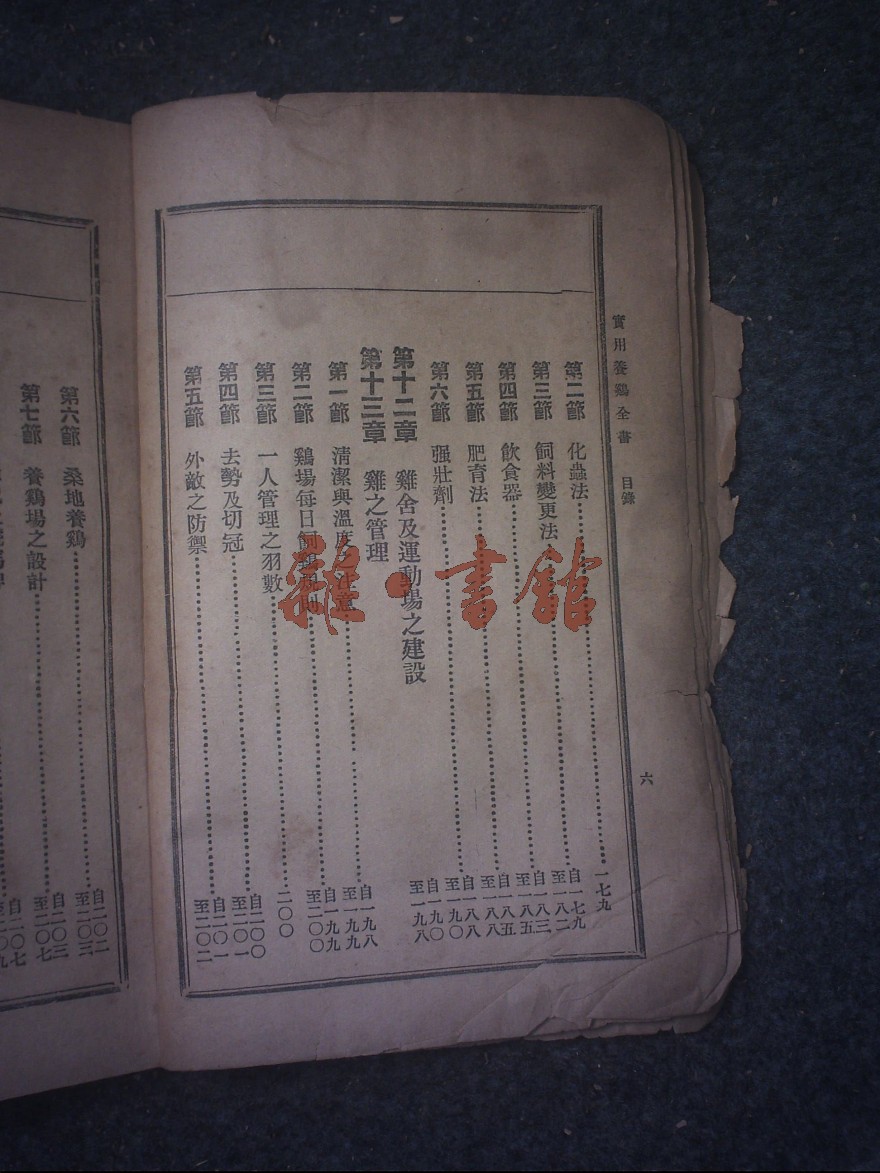 實用養鷄全書 目錄 六
第二節 化蟲法……一七九
第三節 飼料變更法……自一七九至一八二
第四節 飲食器……自一八三至一八五
第五節 肥育法……自一八五至一八八
第六節 强壯劑……自一八八至一九〇
第十二章 雞舍及運動場之建設 自一九〇至一九八
第十三章 雞之管理
第一節 清潔與溫度之注意……自一九八至一九九
第二節 鷄場每日飼規則……自一九九至二〇〇
第三節 一人管理之羽數……二〇〇
第四節 去勢及切冠……自二〇〇至二〇一
第五節 外敵之防禦……自二〇一至二〇二
第六節 桑地養鷄……自二〇二至二〇三
第七節 養鷄場之設計……自二〇三至二〇七
自二〇七至二〇九
雜·書館